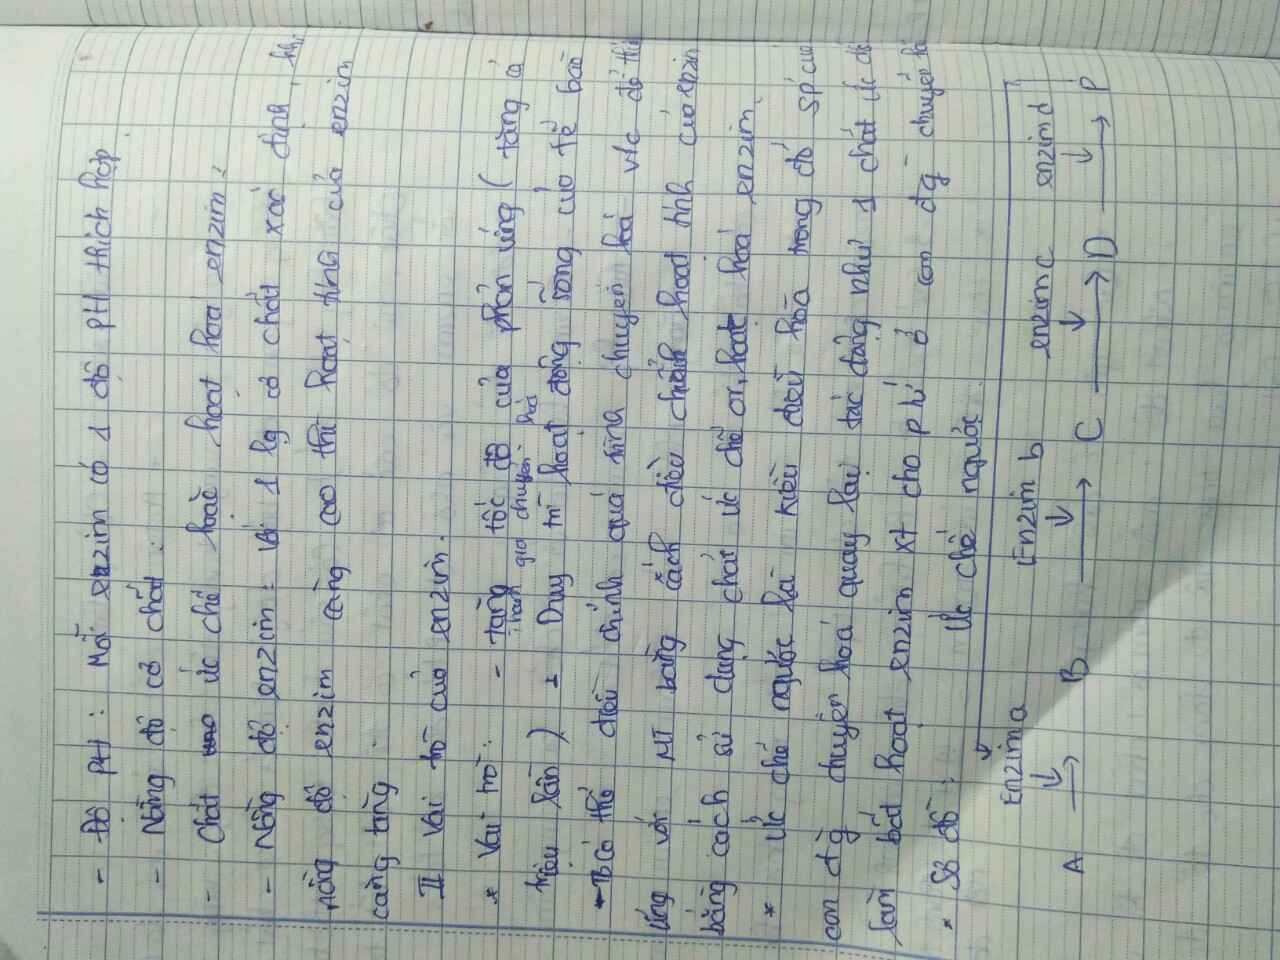 - Độ pH : Mỗi enzim có 1 độ pH thích hợp
- Nồng độ cơ chất :
- Chất ức chế hoặc hoạt hoá enzim :
- Nồng độ enzim : Với 1 lg cơ chất xác định,
nồng độ enzim càng cao thì hoạt tính của enzim
càng tăng
II Vai trò của enzim.
* Vai trò : - Tăng tốc độ của phản ứng ( tăng cả
tham gia chuyển hoá
triệu lần ) - Duy trì hoạt động sống của tế bào
- TB có thể điều chỉnh quá trình chuyển hoá v/c để thích
ứng với MT bằng cách điều chỉnh hoạt tính của enzim
bằng cách sử dụng chất ức chế or hoạt hoá enzim.
* Ức chế ngược là kiểu điều hòa trong đó sp của
con đg chuyển hoá quay lại tác động như 1 chất ức chế
làm bất hoạt enzim xt cho pư ở con đg chuyển hoá
* Sơ đồ : Ức chế ngược
Enzim a Enzim b enzim c enzim d
A → B → C → D → P